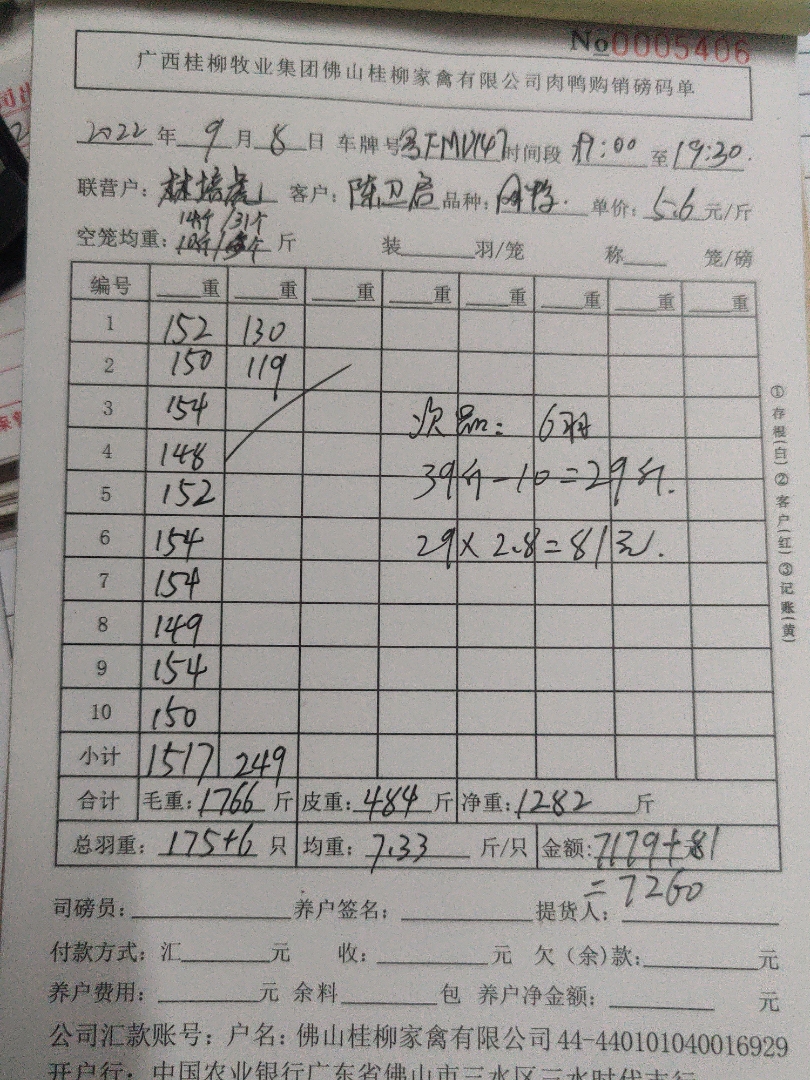 No0005406
广西桂柳牧业集团佛山桂柳家禽有限公司肉鸭购销磅码单
2022 年 9 月 8 日 车牌号 时间段 19:00 至 19:30
联营户: 林培 客户: 陈卫启 品种: 单价: 5.6 元/斤
空笼均重: 斤 装 羽/笼 称 笼/磅
编号 重 重 重 重 重 重 重 重
1 152 130
2 150 119
3 154 次品: 6羽
4 148
5 152 39斤-10=29斤.
6 154 29×2.8=81元.
7 154
8 149
9 154
10 150
小计 1517 249
合计 毛重: 1766 斤 皮重: 484 斤 净重: 1282 斤
总羽重: 175+6 只 均重: 7.33 斤/只 金额: 7179+81
=7260
司磅员: 养户签名: 提货人:
付款方式: 汇 元 收: 元 欠(余)款: 元
养户费用: 元 余料 包 养户净金额: 元
公司汇款账号: 户名: 佛山桂柳家禽有限公司 44-440101040016929
开户行: 中国农业银行广东省佛山市三水区三水时代支行
①存根(白)②客户(红)③记账(黄)